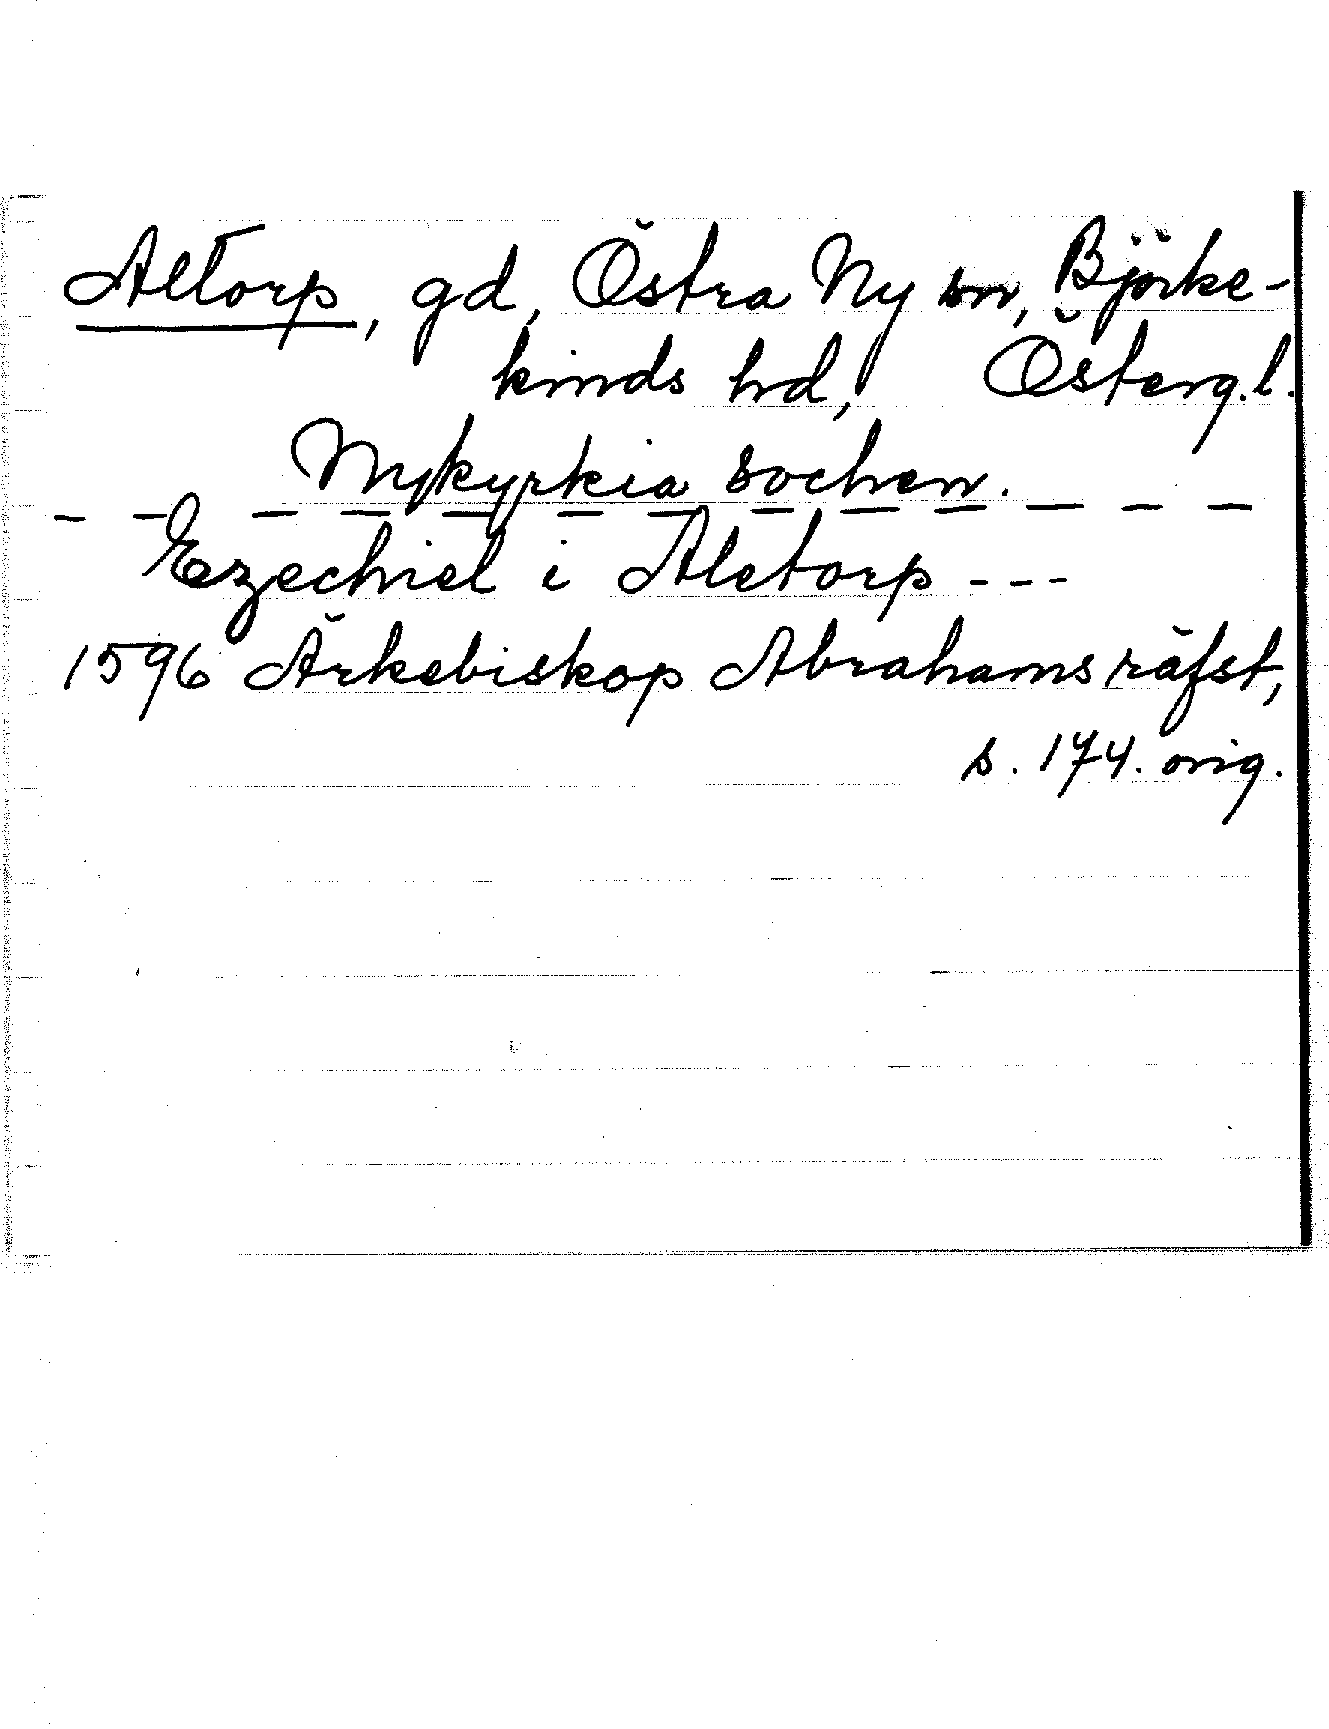 Altorp, gd, Östra Ny sn, Björke-
kinds hd, Österg.l.
Nykyrkia sochen.
- - - - - - - - - - - - -
Ezechiel i Aletorp ---
1596 Ärkebiskop Abrahams räfst,
s. 174. orig.